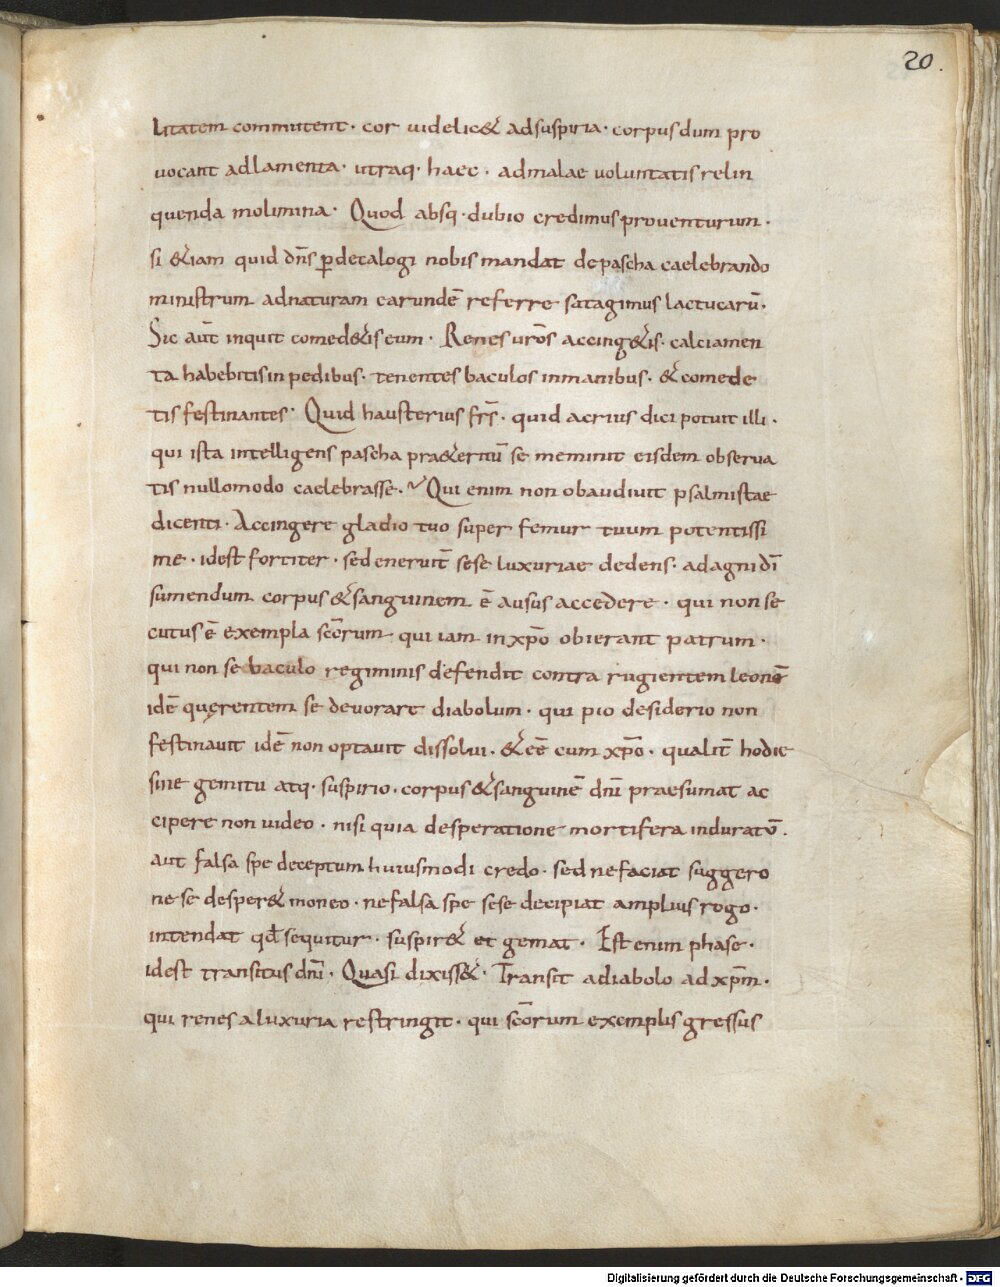 20.
litatem commutent· cor uidelic& adsuspiria· corpus dum pro
uocant adlamenta· utraq· haec· admalae uoluntatis relin
quenda molimina· Quod absq· dubio credimus prouenturum·
si &iam quid dn̄s ꝑ decalogi nobis mandat depascha caelebrando
ministrum adnaturam earundē referre satagimus lactucarū·
Sic aūt inquit comed&is eum· Renes ur̄os accing&is· calciamen
ta habebitis in pedibus· tenentes baculos inmanibus· & comede
tis festinantes· Quid hausterius fr̄s· quid acrius dici potuit illi·
qui ista intelligens pascha pra&eritū se meminit eisdem obserua
tis nullomodo caelebrasse· Qui enim non obaudiuit psalmistae
dicenti· Accingere gladio tuo super femur tuum potentissi
me· idest fortiter· sed eneruit̄ sese luxuriae dedens· ad agni dī
sumendum corpus & sanguinem ē ausus accedere· qui non se
cutus ē exempla sc̄orum qui iam in xp̄o obierant patrum·
qui non se baculo regiminis defendit contra rugientem leonē
idē quęrentem se deuorare diabolum· qui pio desiderio non
festinauit idē non optauit dissolui· & eē cum xp̄o· qualit̄ hodie
sine gemitu atq· suspirio· corpus & sanguinē dn̄i praesumat ac
cipere non uideo· nisi quia desperatione mortifera induratū·
aut falsa spe deceptum huiusmodi credo· sed ne faciat suggero
ne se desper& moneo· ne falsa spe sese decipiat amplius rogo·
intendat qd̄ sequitur· suspir& et gemat· Est enim phase·
idest transitus dn̄i· Quasi dixiss&· Transit adiabolo ad xp̄m·
qui renes a luxuria restringit· qui sc̄orum exemplis gressus
Digitalisierung gefördert durch die Deutsche Forschungsgemeinschaft · DFG